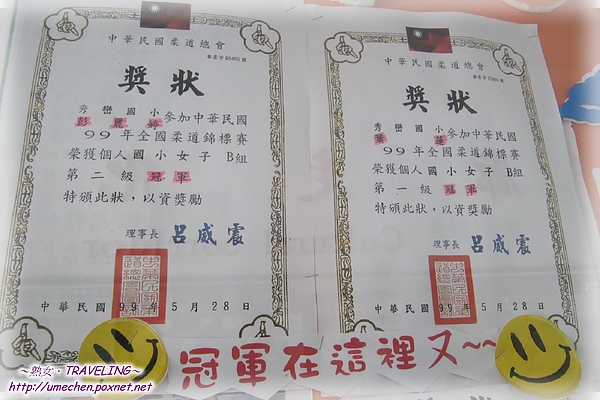 中華民國柔道總會
華柔字 05405 號
獎狀
秀巒國小
彭麗婷
參加中華民國
99年全國柔道錦標賽
榮獲個人國小女子 B組
第二級 冠軍
特頒此狀，以資獎勵
理事長 呂威震
中華民國 99 年 5 月 28 日
中華民國柔道總會
獎狀
秀巒國小
參加中華民國
99年全國柔道錦標賽
榮獲個人國小女子 B組
第一級 冠軍
特頒此狀，以資獎勵
理事長 呂威震
中華民國 99 年 5 月 28 日
冠軍在這裡又~~
～熟女．TRAVELING～
http://umechen.pixnet.net